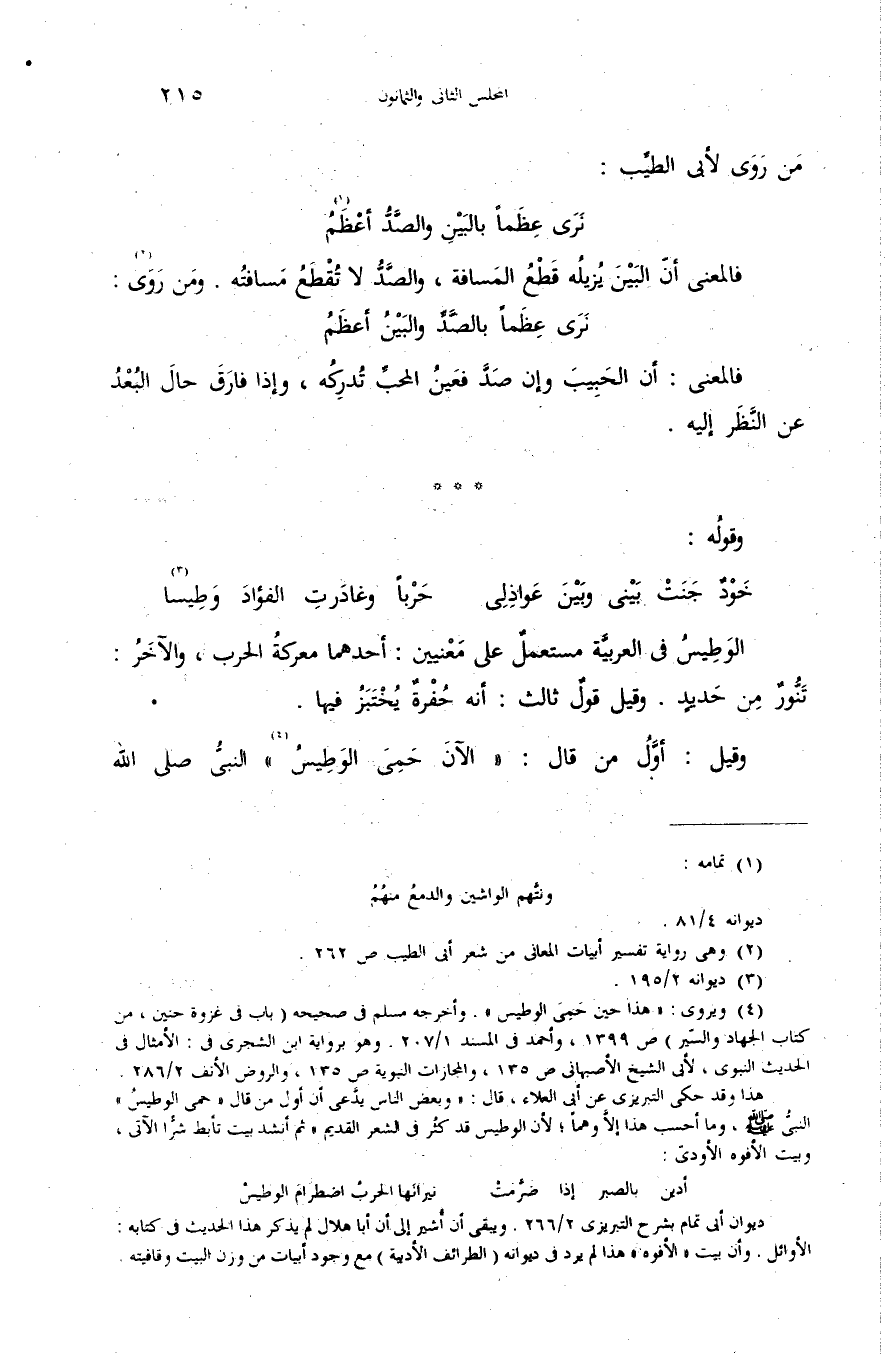 المجلس الثانى والثمانون ٢١٥
مَن رَوَى لأبى الطيِّب :
نَرَى عِظَماً بالبَيْنِ والصَّدُّ أعْظَمُ (١)
فالمعنى أنّ البَيْنَ يُزيلُه قَطْعُ المَسافة ، والصَّدُّ لا تُقْطَعُ مَسافتُه (٢) . ومَن رَوَى :
نَرَى عِظَماً بالصَّدِّ والبَيْنُ أعظَمُ
فالمعنى : أن الحَبِيبَ وإن صَدَّ فعَينُ المحبِّ تُدرِكُه ، وإذا فارَقَ حالَ البُعْدُ
عن النَّظَر إليه .
* * *
وقولُه :
خَوْدٌ جَنَتْ بَيْنى وبَيْنَ عَواذِلِى حَرْباً وغادَرتِ الفؤادَ وَطِيسا (٣)
الوَطِيسُ فى العربيَّة مستعملٌ على مَعْنيين : أحدهما معركةُ الحرب ، والآخَرُ :
تَنُّورٌ مِن حَديدٍ . وقيل قولٌ ثالث : أنه حُفْرةٌ يُخْتَبَزُ فيها .
وقيل : أوَّلُ من قال : « الآنَ حَمِىَ الوَطِيسُ (٤) » النبىُّ صلى الله
(١) تمامه :
ونتَّهم الواشين والدمعُ منهُمُ
ديوانه ٨١/٤ .
(٢) وهى رواية تفسير أبيات المعانى من شعر أبى الطيب ص ٢٦٢ .
(٣) ديوانه ١٩٥/٢ .
(٤) ويروى : « هذا حين حَمِىَ الوطيس » . وأخرجه مسلم فى صحيحه ( باب فى غزوة حنين ، من
كتاب الجهاد والسِّير ) ص ١٣٩٩ ، وأحمد فى المسند ٢٠٧/١ . وهو برواية ابن الشجرى فى : الأمثال فى
الحديث النبوى ، لأبى الشيخ الأصبهانى ص ١٣٥ ، والمجازات النبوية ص ١٣٥ ، والروض الأنف ٢٨٦/٢ .
هذا وقد حكى التبريزى عن أبى العلاء ، قال : « وبعض الناس يدَّعى أن أول من قال « حمى الوطيسُ »
النبىُّ ﷺ ، وما أحسب هذا إلاَّ وهماً ؛ لأن الوطيس قد كثُر فى الشعر القديم » ثم أنشد بيت تأبط شرًّا الآتى ،
وبيت الأفوه الأودىّ :
أدين بالصبر إذا ضرَّمتْ نيرانَها الحربُ اضطرامَ الوطيسْ
ديوان أبى تمام بشرح التبريزى ٢٦٦/٢ . ويبقى أن أُشير إلى أن أبا هلال لم يذكر هذا الحديث فى كتابه :
الأوائل . وأن بيت « الأفوه » هذا لم يرد فى ديوانه ( الطرائف الأدبية ) مع وجود أبيات من وزن البيت وقافيته .